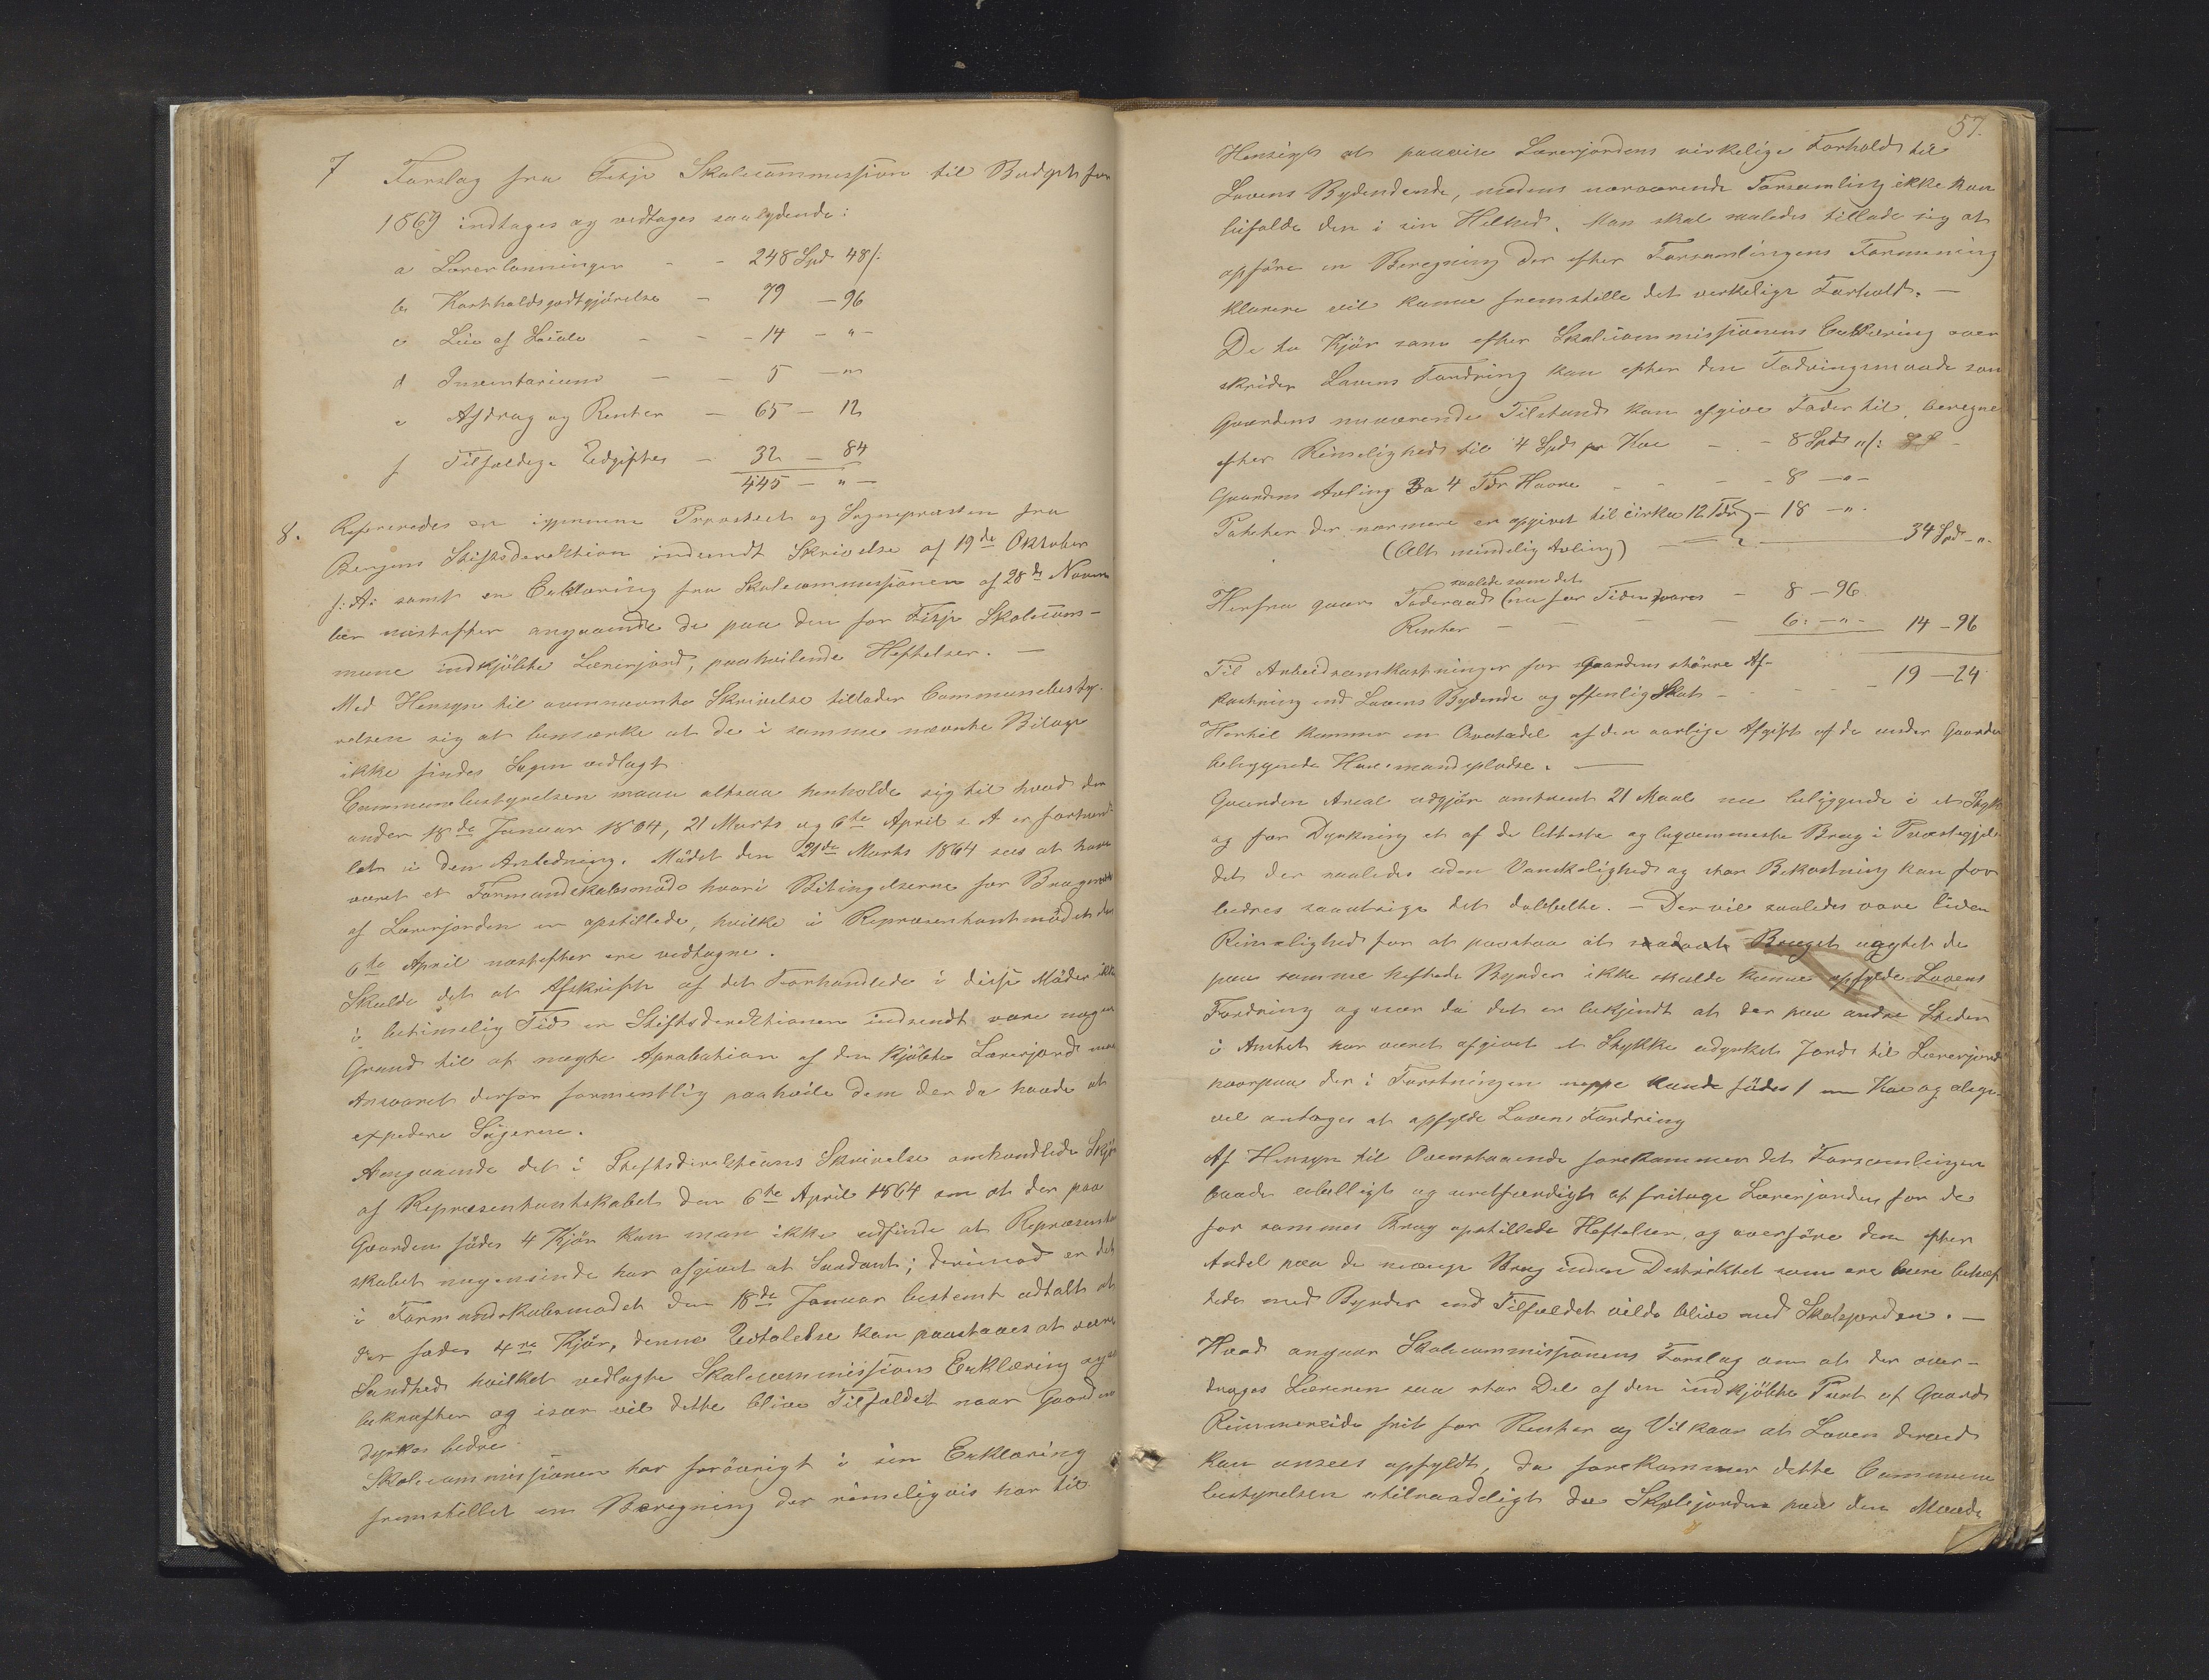 7 Forslag fra Fitje Skolecommission til Budget for
1869 indtages og vedtages saalydende:
a Lærerlønninger - - 248 Spd 48 s:
b Kostholdsgodtgjørelse - 79 - 96
c Leie af Locale - - - 14 - " -
d Inventarium - - 5 - "
e Afdrag og Renter - 65 - 12
f Tilfældige Udgifter - 32 - 84
445 - " -
8. Refereredes en igjennem Provstiet og Sognepræsten fra
Bergens Stiftsdirektion indsendt Skrivelse af 19de Oktober
f: A: samt en Erklæring fra Skolecommissionen af 28de Novem
ber næstefter angaaende de paa den for Fitje Skolecom-
mune indkjøbte Lærerjord, paahvilende Heftelser. -
Med Hensyn til ovennævnte Skrivelse tillader Communebesty-
relsen sig at bemærke at de i samme nævnte Bilage
ikke findes Sagen vedlagt
Communebestyrelsen maa altsaa henholde sig til hvad der
under 18de Januar 1864, 21 Marts og 6te April s. A er forhand
let i den Anledning. Mødet den 21de Marts 1864 sees at have
været et Formandskabsmøde hvori Betingelserne for Brugen
af Lærerjorden er opstillede, hvilke i Repræsentantmødet den
6te April næstefter ere vedtagne.
Skulde det at Afskrift af det Forhandlede i disse Møder ikke
i betimelig Tid er Stiftsdirektionen indsendt være nogen
Grund til at nægte Aprobation af den kjøbte Lærerjord maa
Ansvaret derfor formentlig paahvile dem der da havde at
expedere Sagerne.
Angaaende det i Stiftsdirektions Skrivelse omhandlede
af Repræsentantskabet den 6te April 1864 om at der paa
Gaarden fødes 4 Kjør kan man ikke udfinde at Repræsentant
skabet nogensinde har afgivet et Saadant; derimod er det
i Formandskabsmødet den 18de Januar bestemt udtalt at
der fødes 4re Kjør, denne Udtalelse kan paastaaes at være
Sandhed hvilket vedlagte Skolecommissions Erklæring og
bekræfter og især vil dette blive Tilfældet naar Gaarden
dyrkes bedre
Skolecommissionen har forøvrigt i sin Erklæring
fremstillet en Beregning der rimeligvis har til
57.
Hensigt at paavise Lærerjordens virkelige Forhold til
Lovens Bydendende, medens nærværende Forsamling ikke kan
bifalde den i sin Helhed. Man skal saaledes tillade sig at
opføre en Beregning der efter Forsamlingens Formening
klarere vil kunne fremstille det virkelige Forhold. -
De to Kjør som efter Skolecommissionens Erklæring over
skrider Lovens Fordring kan efter den Fodringsmaade som
Gaardens nuværende Tilstand kan afgive Foder til, beregne
efter Rimelighed til 4 Spd pr Koe - - 8 Spd " s:
Gaardens Avling 3 a 4 Tdr Havre - - - - 8 - " -
Poteter der nærmere er opgivet til cirka 12 Tdr - 18 - " -
(Alt mindelig Avling) 34 Spd - " -
Herfra gaar Føderaad (saalede som det nu for Tiden svares - 8 - 96
Renter - - - - 6: - " - 14 - 96
Til Arbeidsomkostninger for Gaardens større Af-
kastning end Lovens Bydende og offentlig Skat - - - - 19 - 24
Hertil kommer en Qvotadel af den aarlige Afgift af de under Gaarden
beliggende Huusmandspladse. -
Gaarden Areal udgjør omtrent 21 Maal nu beliggende i et Stykke
og for Dyrkning et af de letteste og beqvemmeste Brug i Præstegjeldet
det der saaledes uden Vanskelighed og stor Bekostning kan for
bedres saaatsige det dobbelte. - Der vil saaledes være liden
Rimelighed for at paastaa at saadant Bruget uagtet de
paa samme heftede Byrder ikke skulde kunne opfylde Lovens
Fordring og naar da det er bekjendt at der paa andre Steder
i Amtet har været afgivet et Stykke udyrket Jord til Lærerjord
hvorpaa der i Forstningen neppe kunde fødes 1 Koe og alige-
vel antages at opfylde Lovens Fordring
Af Hensyn til Ovenstaaende forekommer det Forsamlingen
baade ubilligt og uretfærdigt at fritage Lærerjorden for de
for sammes Brug opstillede Heftelser, og overføre dem efter
Andel paa de mange Brug inden Destriktet som ere mere behæf
tede med Byrder end Tilfældet vilde blive med Skolejorden. -
Hvad angaar Skolecommissionens Forslag om at der over-
drages Læreren saa stor Del af den indkjøbte Part af Gaard
Rimmereide frit for Renter og Vilkaar at Loven derved
kan ansees opfyldt, da forekommer dette Commune
bestyrelsen utilraadeligt da Skolejorden paa den Maade